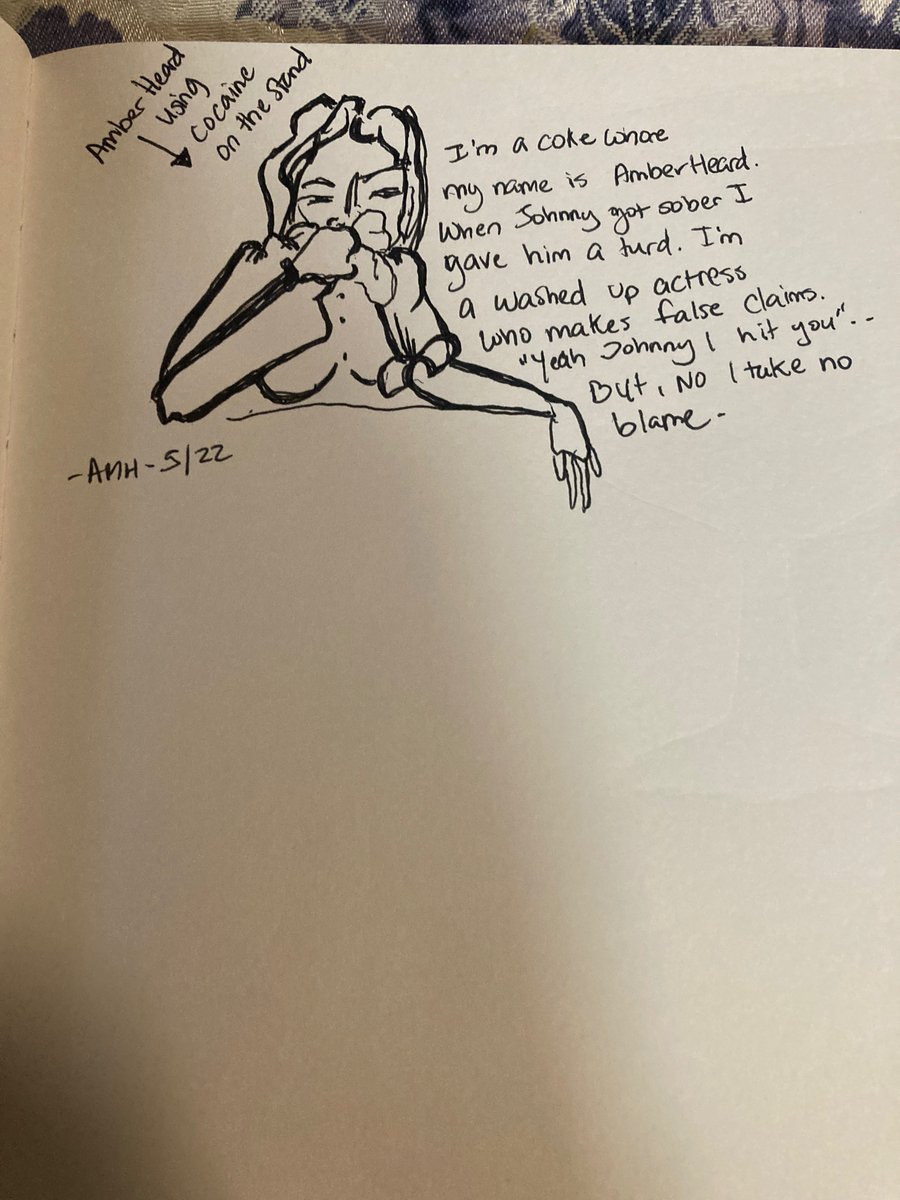 Amber Heard
using
cocaine
on the stand
I'm a coke whore
my name is Amber Heard.
When Johnny got sober I
gave him a turd. I'm
a washed up actress
who makes false claims.
"Yeah Johnny I hit you"..
But, No I take no
blame-
-AMH-5/22